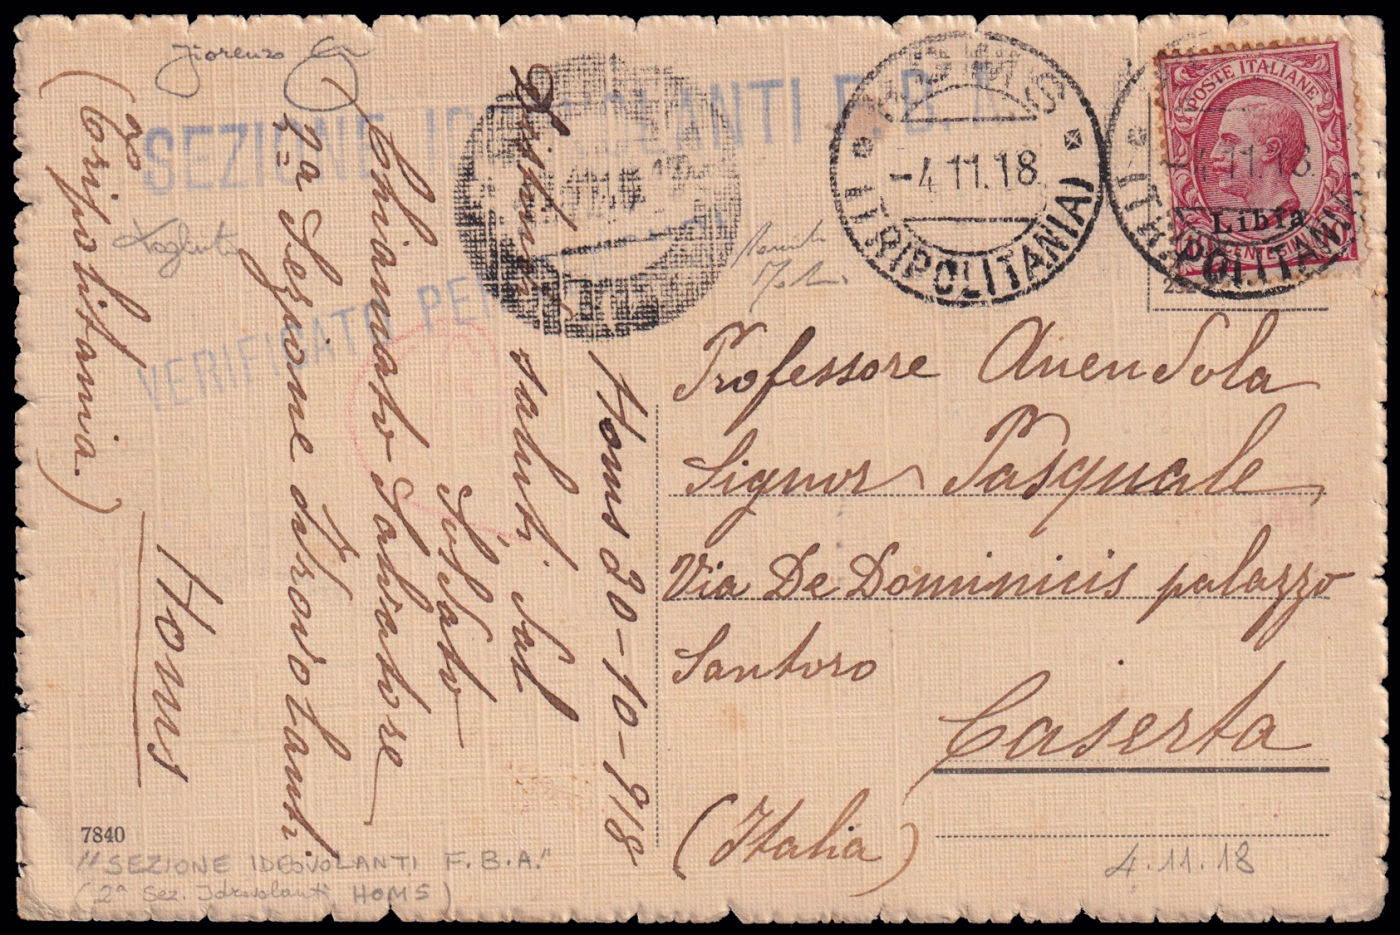 SEZIONE IDROVOLANTI F.B.A.
VERIFICATO PER
HOMS
-4.11.18
(TRIPOLITANIA)
-4.11.18
POSTE ITALIANE
Libia
7840
Homs 20-10-918
Distinti saluti Sal
Soldato
Chiamato Salvatore
2a Sezione Idrovolanti
(Tripolitania)
Homs
Professore Avendola
Signor Pasquale
Via De Dominicis palazzo
Santoro
Caserta
(Italia)
Fiorenzo
"SEZIONE IDEOVOLANTI F.B.A."
(2ª Sez. Idrovolanti HOMS)
4.11.18